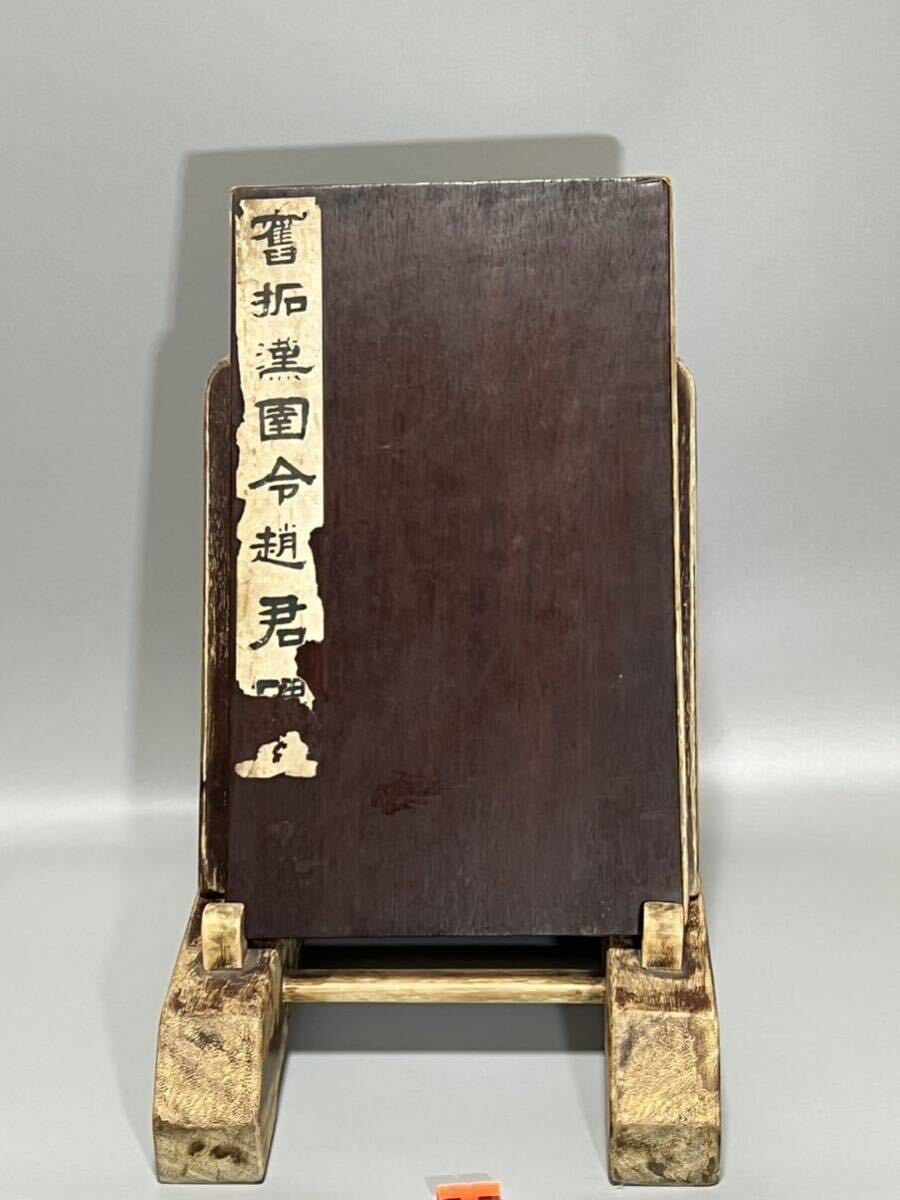 舊拓漢圉令趙君碑